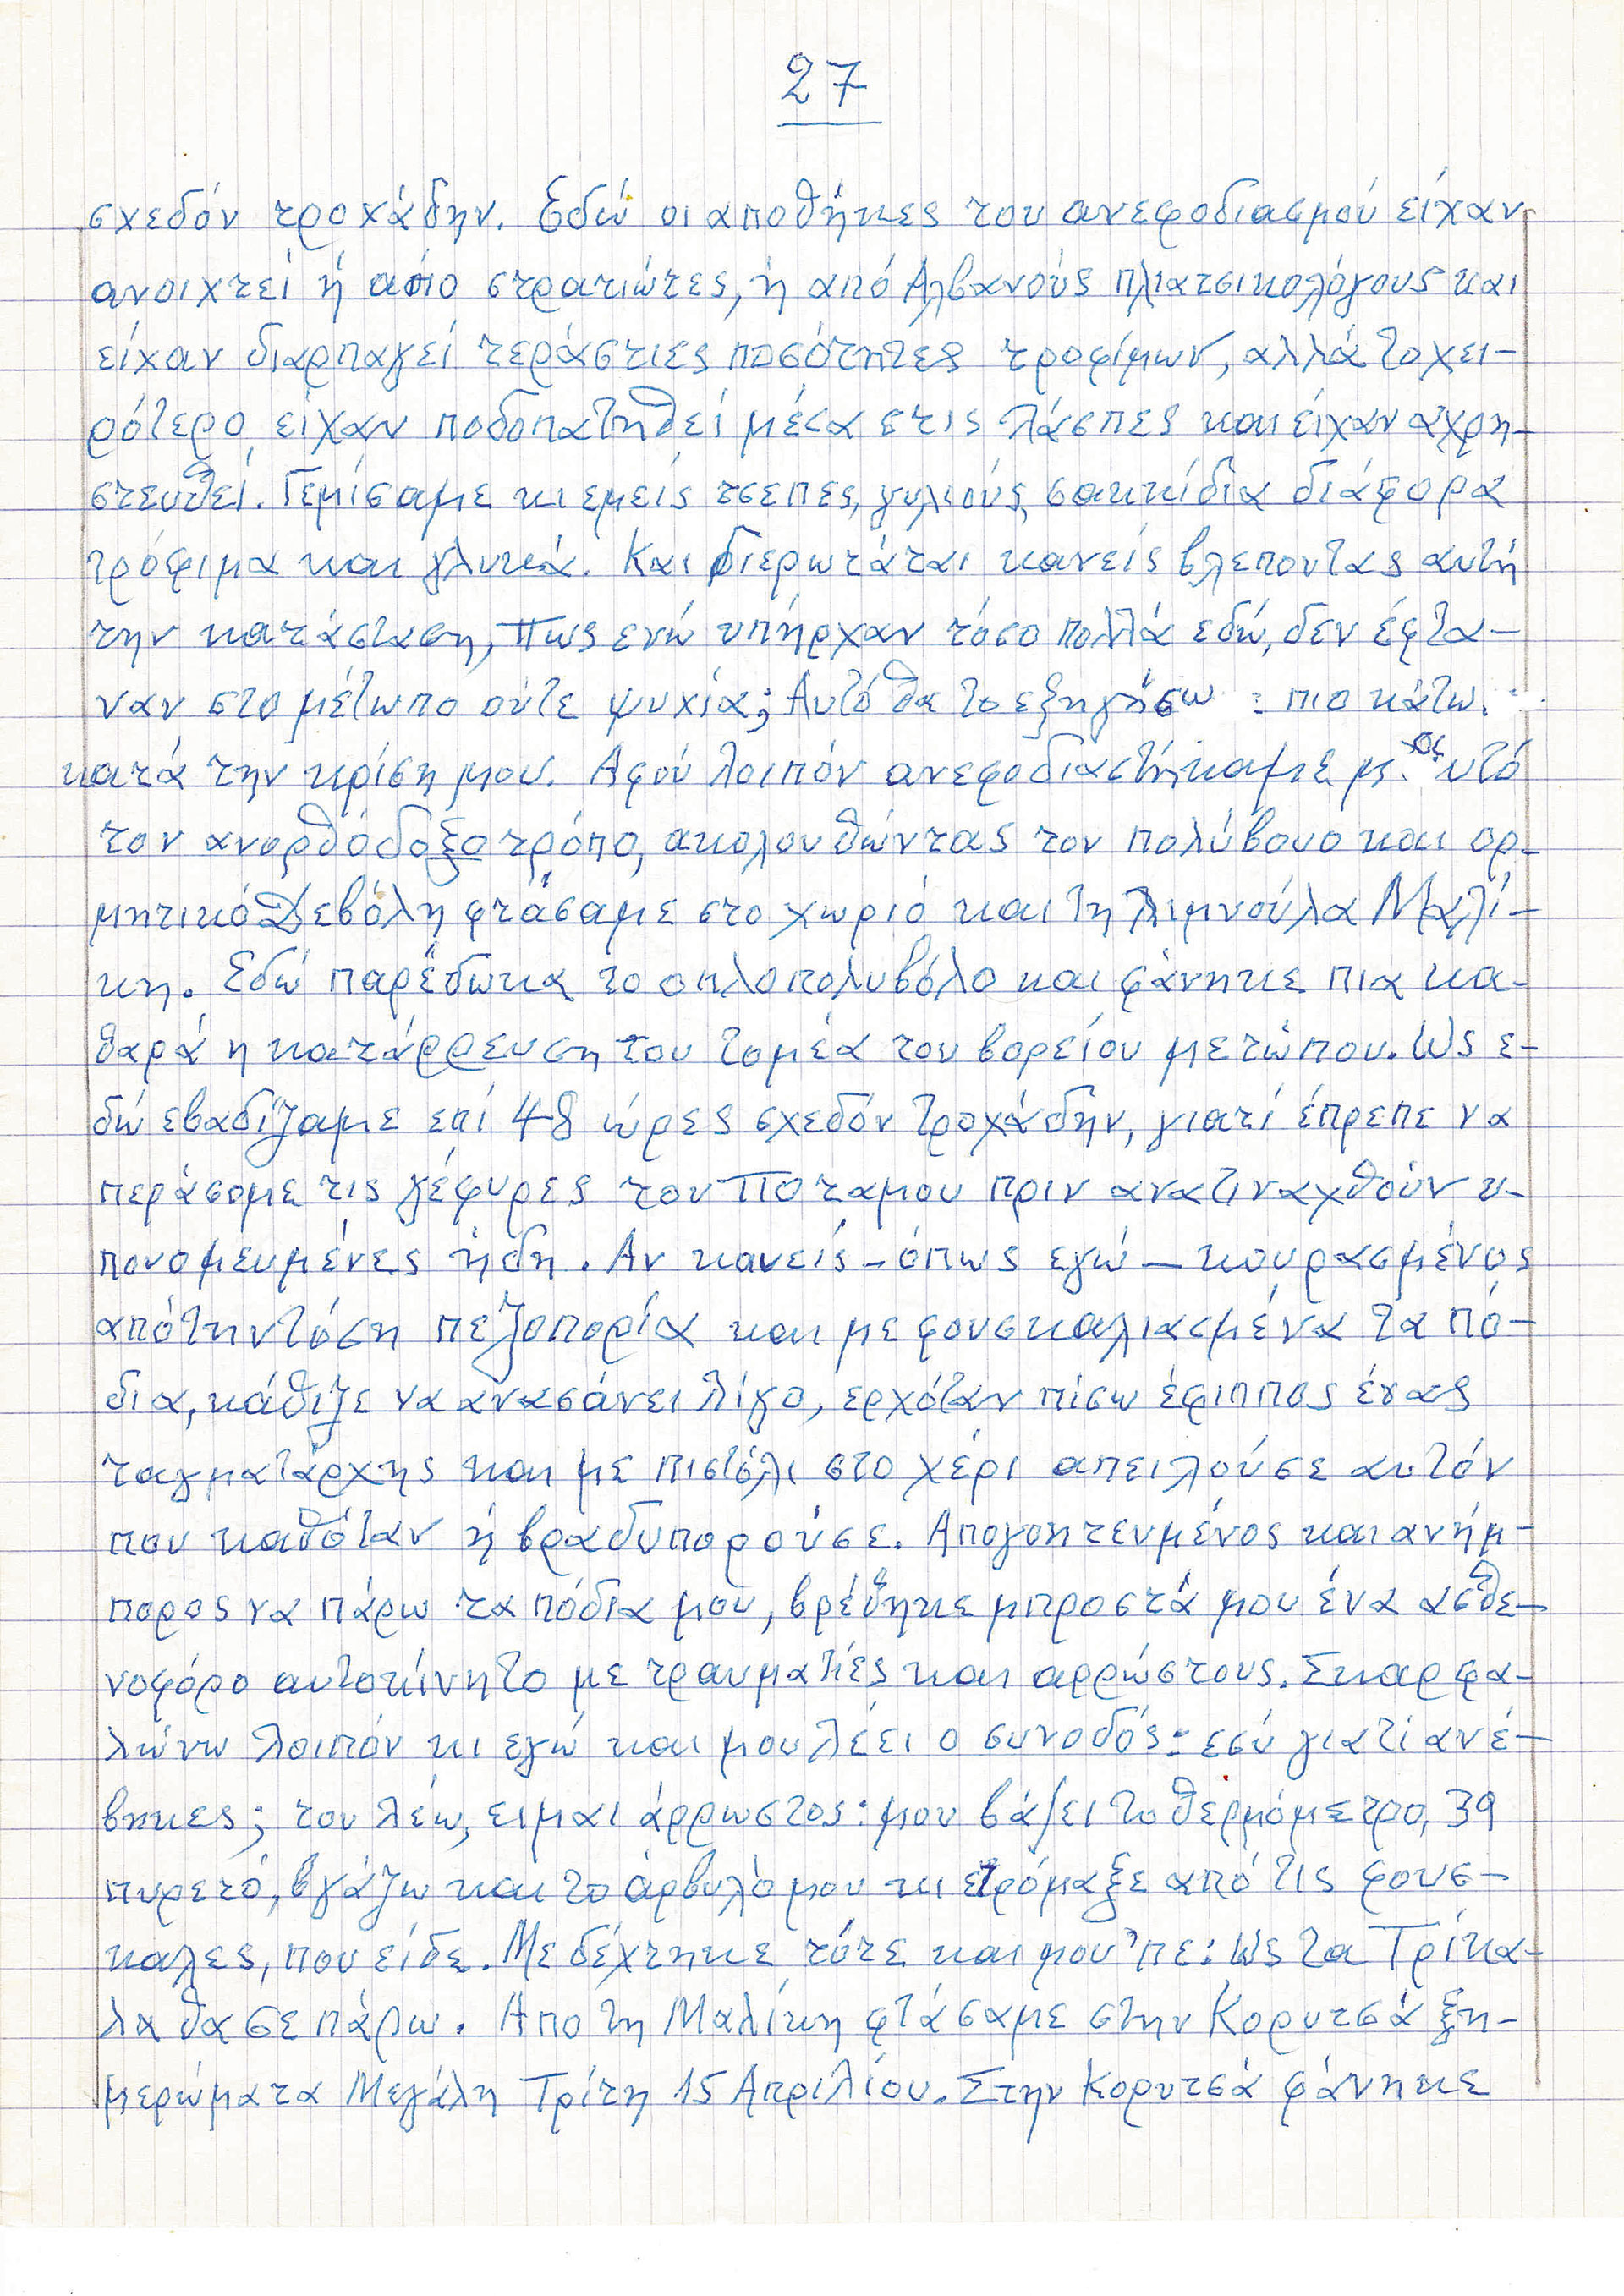 27
σχεδόν τροχάδην. Εδώ οι αποθήκες του ανεφοδιασμού είχαν
ανοιχτεί ή από στρατιώτες, ή από Αλβανούς πλιατσικολόγους και
είχαν διαρπαγεί τεράστιες ποσότητες τροφίμων, αλλά το χει-
ρότερο είχαν ποδοπατηθεί μέσα στις λάσπες και είχαν αχρη-
στευθεί. Γεμίσαμε κι εμείς τσεπες, γυλιούς, σακκίδια διάφορα
τρόφιμα και γλυκά. Και διερωτάται κανείς βλεποντας αυτή
την κατάσταση, πως ενώ υπήρχαν τόσο πολλά εδώ, δεν έφτα-
ναν στο μέτωπο ούτε ψυχία; Αυτό θα το εξηγήσω : πιο κάτω.
κατά την κρίση μου. Αφού λοιπόν ανεφοδιαστήκαμε μ' αυτό
τον ανορθόδοξο τρόπο, ακολουθώντας τον πολύβουο και ορ-
μητικό Δεβόλη φτάσαμε στο χωριό και τη λιμνούλα Μαλί-
κη. Εδώ παρέδωκα το οπλοπολυβόλο και φάνηκε πια κα-
θαρά η κατάρρευση του τομέα του βορείου μετώπου. Ως ε-
δώ εβαδίζαμε επί 48 ώρες σχεδόν τροχάδην, γιατί έπρεπε να
περάσομε τις γέφυρες του Ποταμου πριν ανατιναχθούν υ-
πονομευμένες ήδη. Αν κανείς - όπως εγώ - κουρασμένος
από την τόση πεζοπορία και με φουσκαλιασμένα τα πό-
δια, κάθιζε να ανασάνει λίγο, ερχόταν πίσω έφιππος ένας
ταγματάρχης και με πιστόλι στο χέρι απειλούσε αυτόν
που καθόταν ή βραδυπορούσε. Απογοητευμένος και ανήμ-
πορος να πάρω τα πόδια μου, βρέθηκε μπροστά μου ένα ασθε-
νοφόρο αυτοκίνητο με τραυματίες και αρρώστους. Σκαρφα-
λώνω λοιπόν κι εγώ και μου λέει ο συνοδός: εσύ γιατί ανέ-
βηκες; του λέω, ειμαι άρρωστος: μου βάζει το θερμόμετρο, 39
πυρετό, βγάζω και το άρβυλό μου κι ετρόμαξε από τις φουσ-
καλες, που είδε. Με δέχτηκε τότε και μου 'πε: Ως τα Τρίκα-
λα θα σε πάρω. Απο τη Μαλίκη φτάσαμε στην Κορυτσά ξη-
μερώματα Μεγάλη Τρίτη 15 Απριλίου. Στην Κορυτσά φάνηκε